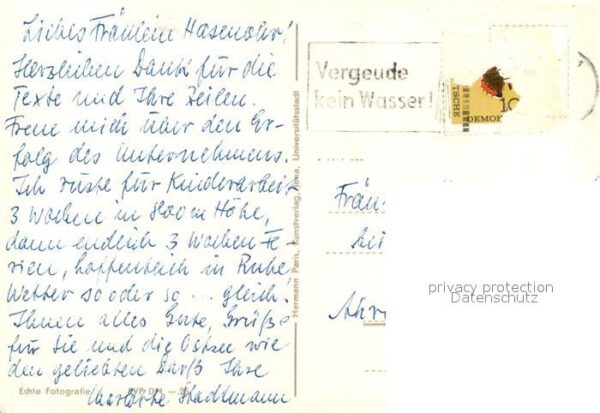 Liebes Fräulein Hasenohr!
Herzlichen Dank für die
Texte und Ihre Zeilen.
Freue mich über den Er-
folg des Unternehmens.
Ich rüste für Kinderarbeit
3 Wochen in 800 m Höhe,
dann endlich 3 Wochen Fe-
rien, hoffentlich in Ruhe!
Wetter so oder so ... gleich!
Ihnen alles Gute, Grüße
für Sie und die Ostsee wie
den geliebten Darß Ihre
Stadlmann
Echte Fotografie
Hermann Paris, Kunstverlag, Jena, Universitätsstadt
Vergeude
kein Wasser!
10
TSCHE
DEMOK
Fräu-
privacy protection
Datenschutz